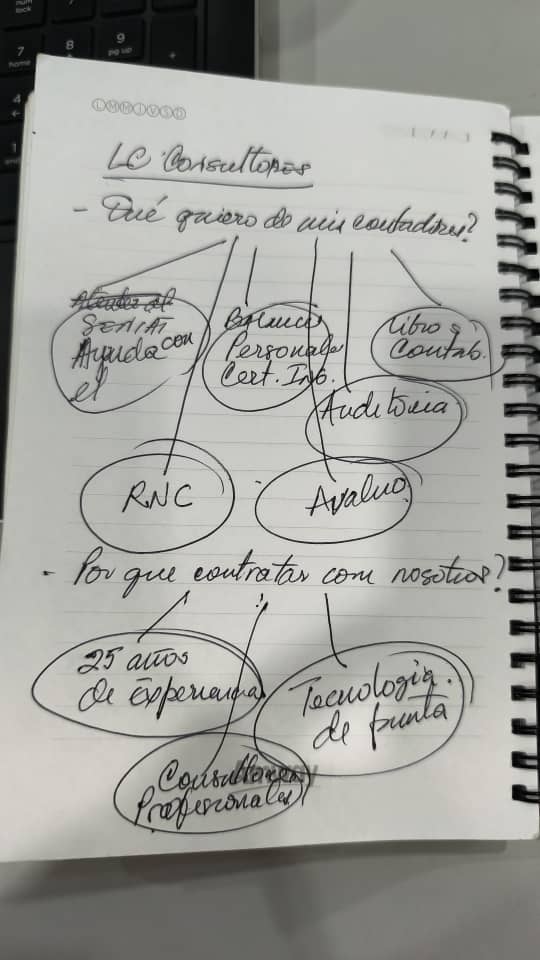 LMMJVSD
LC Consultores
- Qué quiero de mis contadores?
SENIAT
Ayuda con
el
Balances
Personales
Cert. Ing.
Libros
Contab.
Auditoria
RNC
Avaluo
- Por que contratar com nosotros?
25 años
de Experiencia
Tecnologia
de punta
Consultores
Profesionales